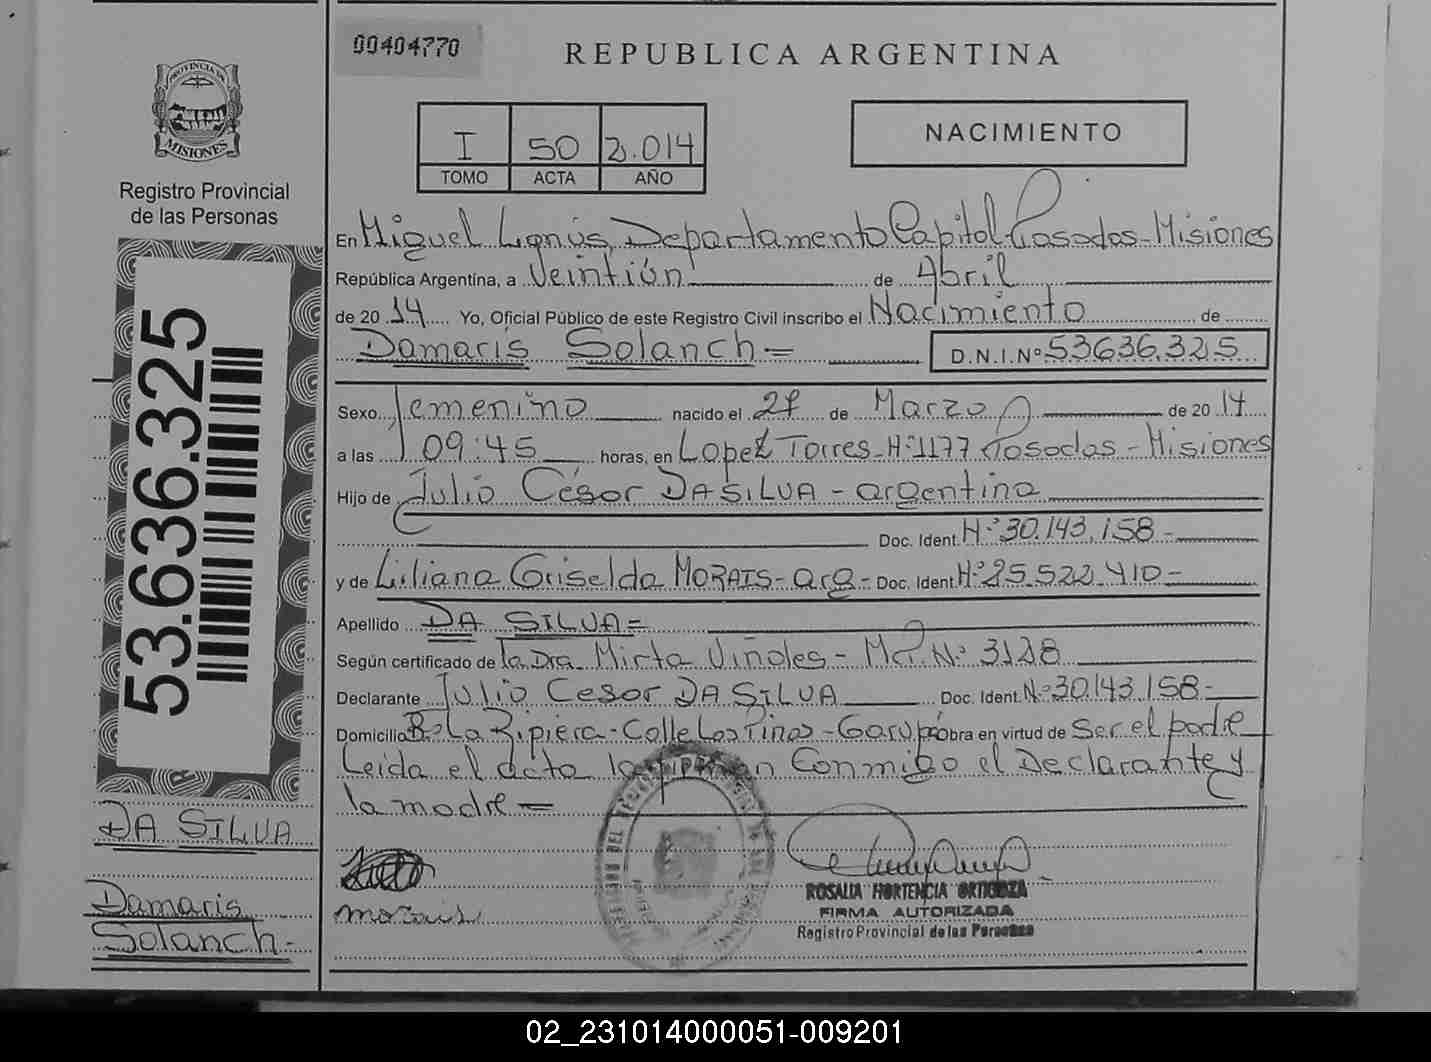 00404770
REPUBLICA ARGENTINA
PROVINCIA DE
MISIONES
Registro Provincial
de las Personas
I 50 2.014
TOMO ACTA AÑO
NACIMIENTO
En Miguel Lanús, Departamento Capital Posadas - Misiones
República Argentina, a Veintiún de Abril
de 2014 Yo, Oficial Público de este Registro Civil inscribo el Nacimiento de
Damaris Solanch= D.N.I.Nº 53636.325
Sexo femenino nacido el 27 de Marzo de 2014
a las 09:45 horas, en Lopez Torres Nº 1177 Posadas - Misiones
Hijo de Julio César DA SILVA - argentina
Doc. Ident. Nº 30.143.158-
y de Liliana Griselda MORAIS - arg - Doc. Ident. Nº 25.522.410-
Apellido DA SILVA=
Según certificado de la Dra. Mirta Viñoles - MP. Nº 3128
Declarante Julio Cesar DA SILVA Doc. Ident. Nº 30.143.158-
Domicilio Bº La Ripiera - Calle Los Pinos - Garupá obra en virtud de Ser el padre
Leida el acta la firman Conmigo el Declarante y
la madre=
53.636.325
DA SILVA
Damaris
Solanch-
morais
ROSALIA HORTENCIA ORTIGOZA
FIRMA AUTORIZADA
Registro Provincial de las Personas
02_231014000051-009201